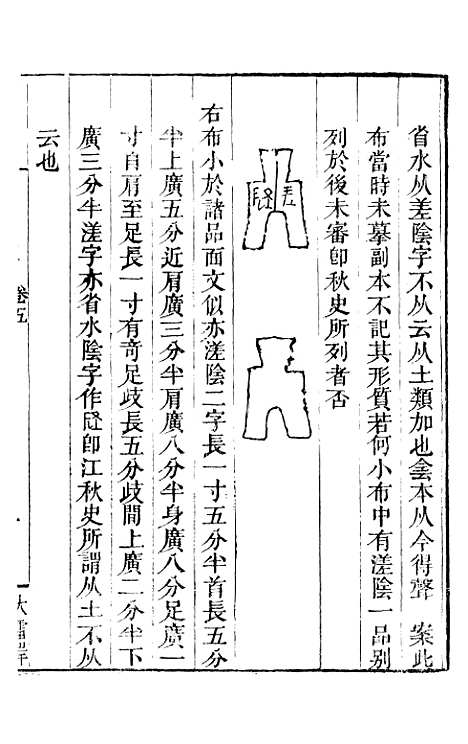 省水从差陰字不从云从土類加也侌本从今得聲　案此
布當時未摹副本不記其形質若何小布中有溠陰一品別
列於後未審卽秋史所列者否
右布小於諸品面文似亦溠陰二字長一寸五分半首長五分
半上廣五分近肩廣三分半肩廣八分半身廣八分足廣一
寸自肩至足長一寸有奇足歧長五分歧間上廣二分半下
廣三分半溠字亦省水陰字作𨸝卽江秋史所謂从土不从
云也
卷五